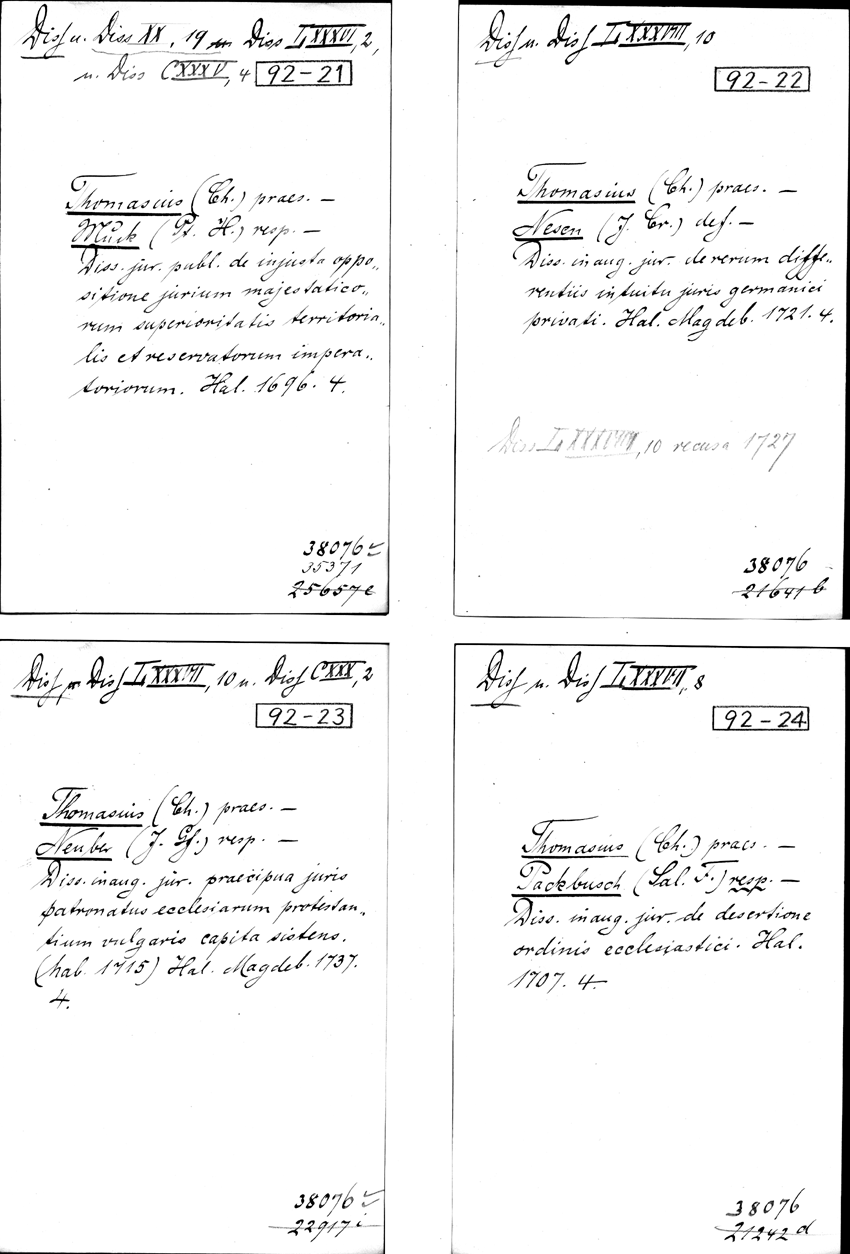 Diss u. Diss XX, 19 u. Diss LXXXVI, 2,
u. Diss CXXXV, 4
92-21
Thomasius (Ch.) praes. —
Muck (Pt. H.) resp. —
Diss. jur. publ. de injusta oppo-
sitione jurium majestatico-
rum superioritatis territoria-
lis et reservatorum impera-
toriorum. Hal. 1696. 4.
38076
35371
25657e
Diss u. Diss LXXXVIII, 10
92-22
Thomasius (Ch.) praes. —
Nesen (J. Cr.) def. —
Diss. inaug. jur. de rerum diffe-
rentiis intuitu juris germanici
privati. Hal. Magdeb. 1721. 4.
Diss LXXXVIII, 10 recusa 1727
38076
21641 b
Diss u. Diss LXXXVIII, 10 u. Diss CXXX, 2
92-23
Thomasius (Ch.) praes. —
Neuber (J. Gf.) resp. —
Diss. inaug. jur. praecipua juris
patronatus ecclesiarum protestan-
tium vulgaris capita sistens.
(hab. 1715) Hal. Magdeb. 1737.
4.
38076
22917 i
Diss u. Diss LXXXVII, 8
92-24
Thomasius (Ch.) praes. —
Packbusch (Sal. F.) resp. —
Diss. inaug. jur. de desertione
ordinis ecclesiastici. Hal.
1707. 4.
38076
21242 d